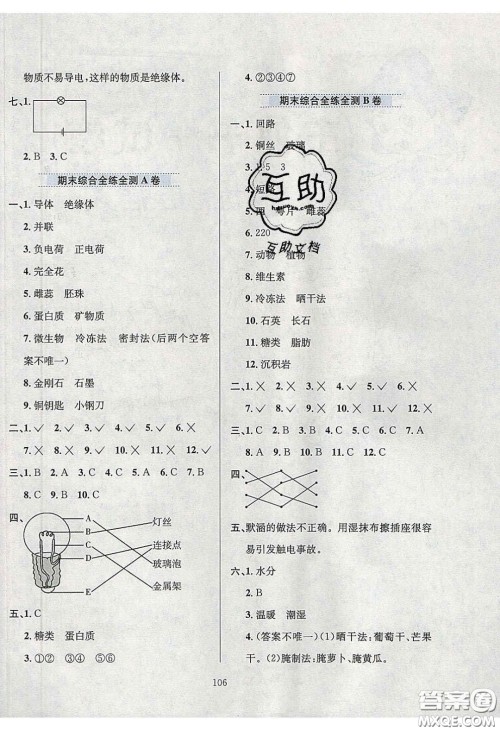 物质不易导电,这样的物质是绝缘体。
七、1.
2. B 3. C
期末综合全练全测 A 卷
一、1. 导体 绝缘体
2. 并联
3. 负电荷 正电荷
4. 完全花
5. 雌蕊 胚珠
6. 蛋白质 矿物质
7. 微生物 冷冻法 密封法(后两个空答
案不唯一)
8. 金刚石 石墨
9. 铜钥匙 小钢刀
二、1. ✓ 2. ✓ 3. ✓ 4. ✓ 5. ✓ 6. ✓
7. × 8. × 9. ✓ 10. × 11. × 12. ✓
三、1. C 2. B 3. A 4. B 5. A 6. C 7. B
8. C 9. C 10. C
四、
A
B
C
D
E
灯丝
连接点
玻璃泡
金属架
五、1. C
2. 糖类 蛋白质
3. ①② ④ ③
4. ②③④⑦
期末综合全练全测 B 卷
一、1. 回路
2. 铜丝 玻璃
3
4. 短路
雌蕊
6. 220
7. 动物 植物
8. 维生素
9. 冷冻法 晒干法
10. 石英 长石
11. 糖类 脂肪
12. 沉积岩
二、1. × 2. × 3. × 4. ✓ 5. × 6. ×
7. ✓ 8. ✓ 9. × 10. ✓ 11. × 12. ✓
三、1. C 2. B 3. B 4. A 5. B 6. B 7. B
8. A 9. C 10. B
四、
五、默涵的做法不正确。用湿抹布擦插座很容
易引发触电事故。
六、1. 水分
2. B
3. 温暖 潮湿
4. (答案不唯一)(1)晒干法:葡萄干、芒果
干。(2)腌制法:腌萝卜、腌黄瓜。
互助
互助文档
106
答案圈
MXQE.COM